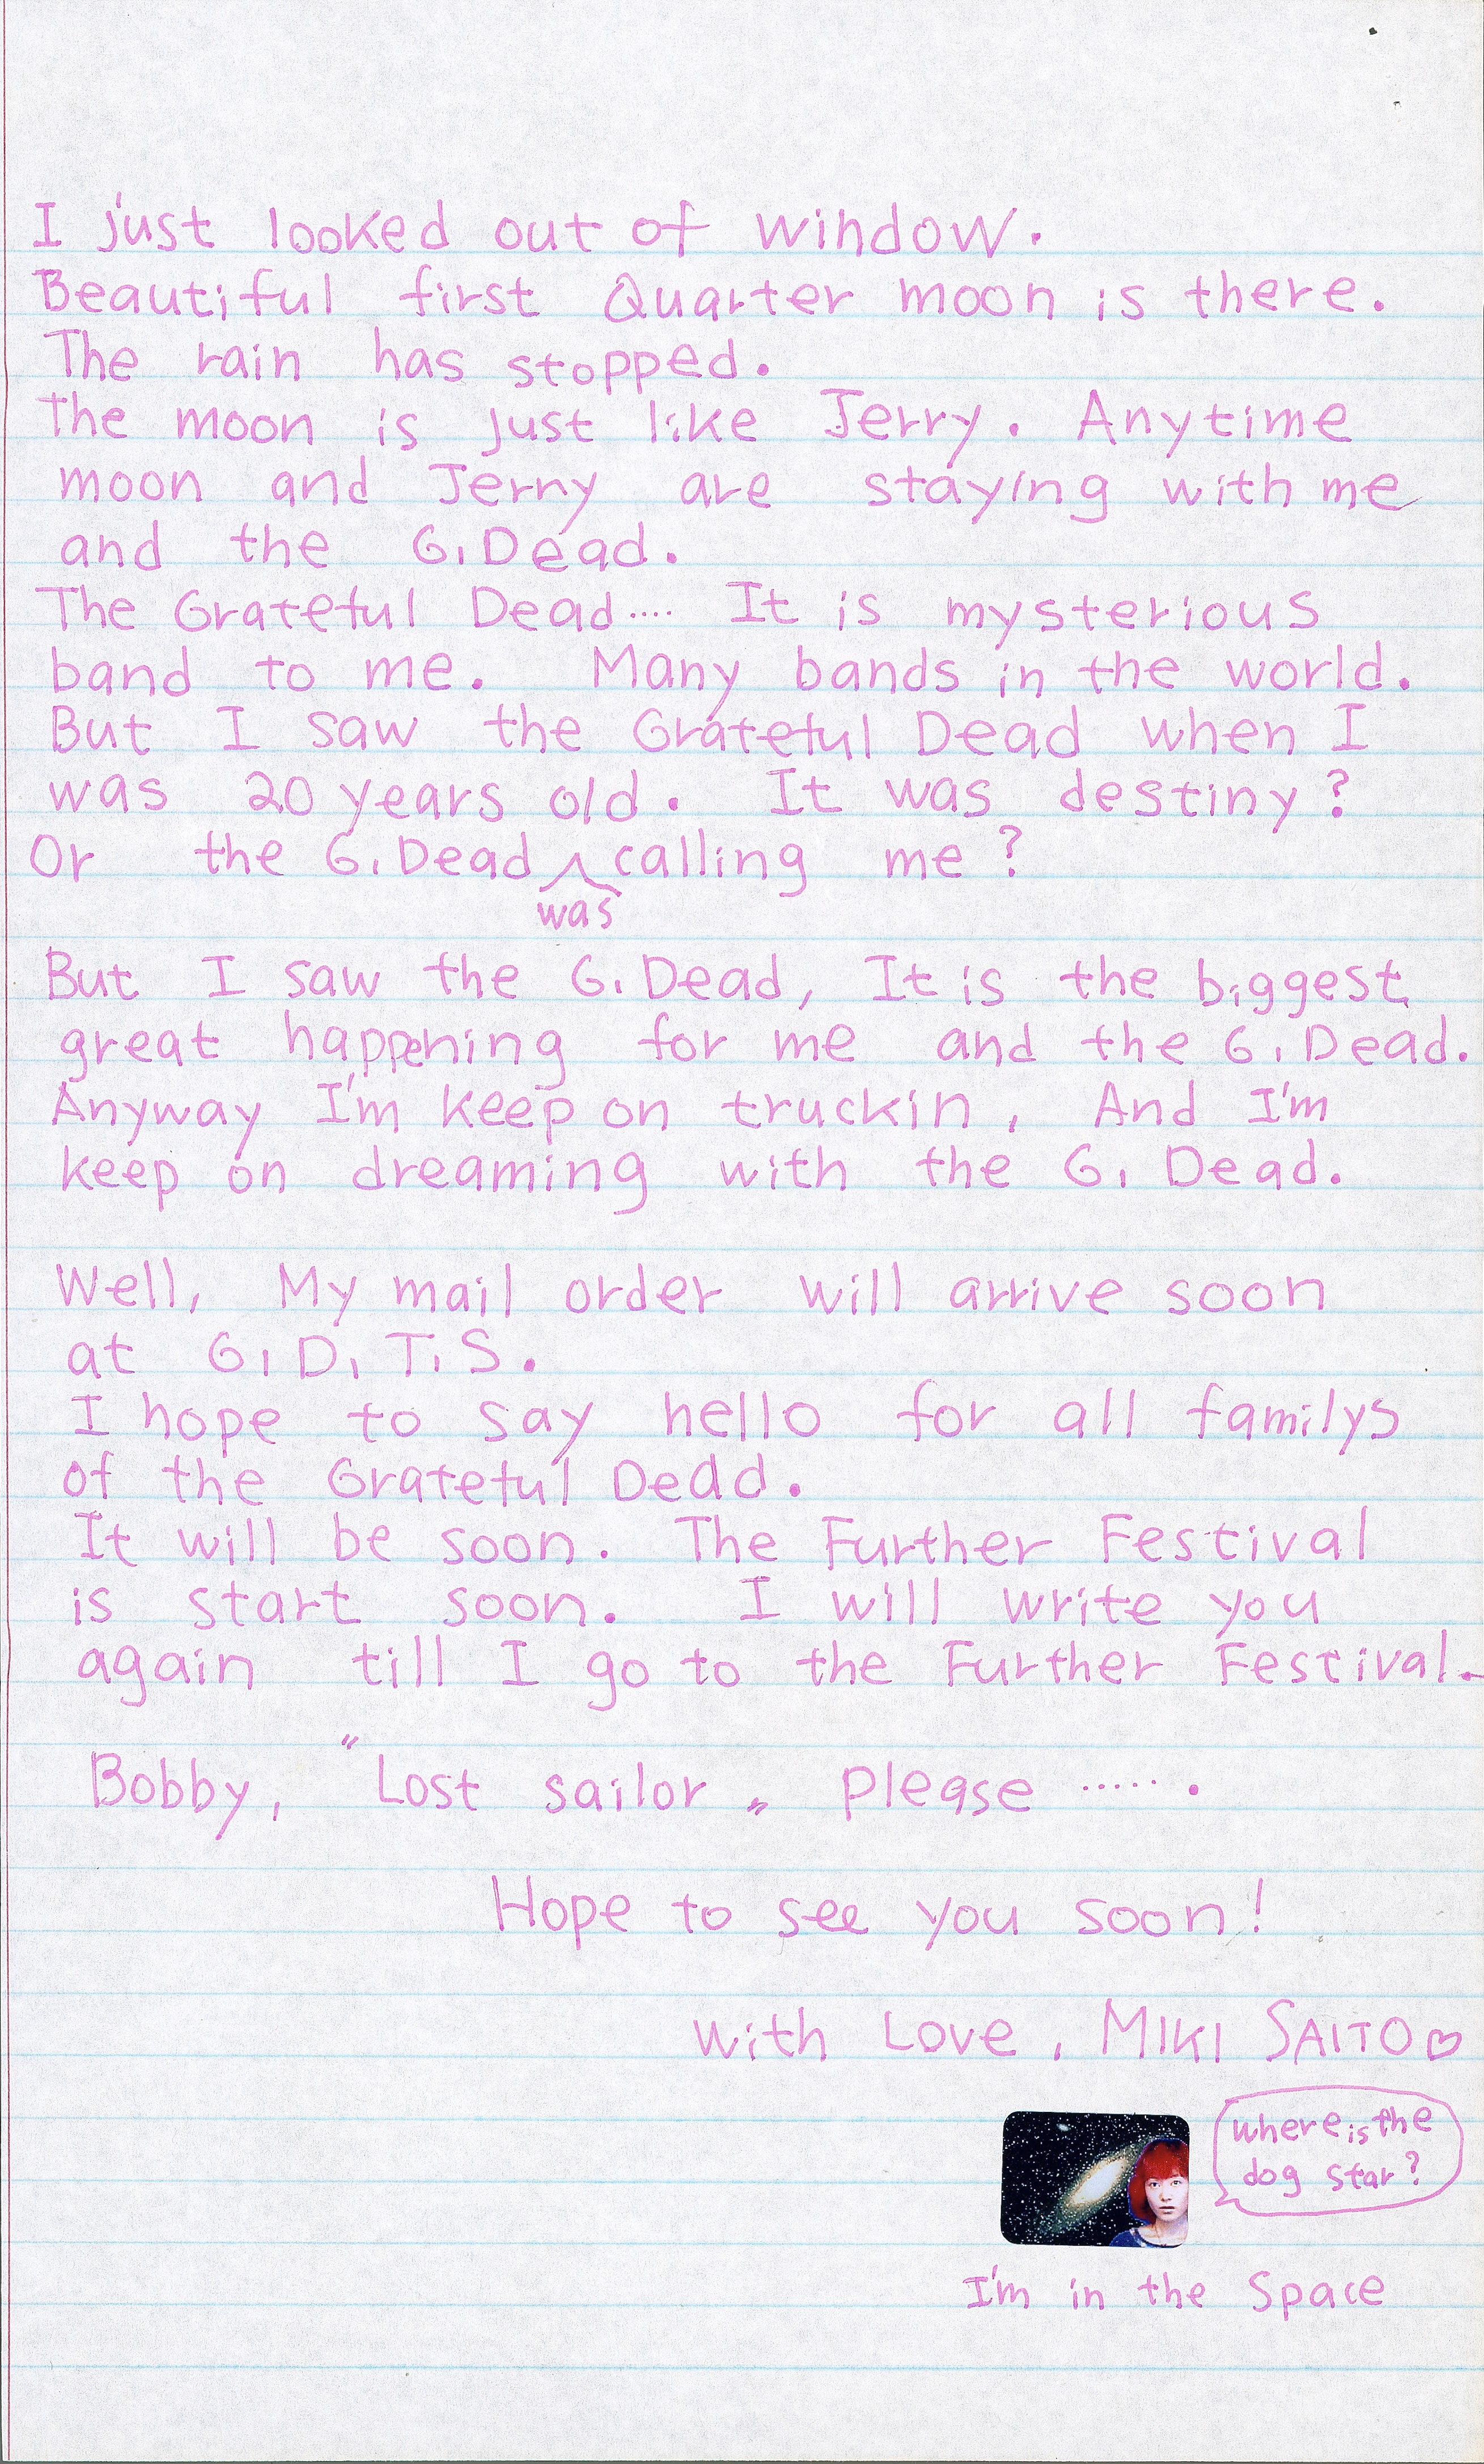 I just looked out of window.
Beautiful first Quarter moon is there.
The rain has stopped.
The moon is just like Jerry. Anytime
moon and Jerry are staying with me
and the G.Dead.
The Grateful Dead.... It is mysterious
band to me. Many bands in the world.
But I saw the Grateful Dead when I
was 20 years old. It was destiny?
Or the G.Dead was calling me?
But I saw the G.Dead, It is the biggest
great happening for me and the G.Dead.
Anyway I'm keep on truckin, And I'm
keep on dreaming with the G. Dead.
Well, My mail order will arrive soon
at G.D.T.S.
I hope to say hello for all familys
of the Grateful Dead.
It will be soon. The Further Festival
is start soon. I will write you
again till I go to the Further Festival.
Bobby, "Lost sailor" please ...... .
Hope to see you soon!
with Love, MIKI SAITO♡
where is the
dog star?
I'm in the Space